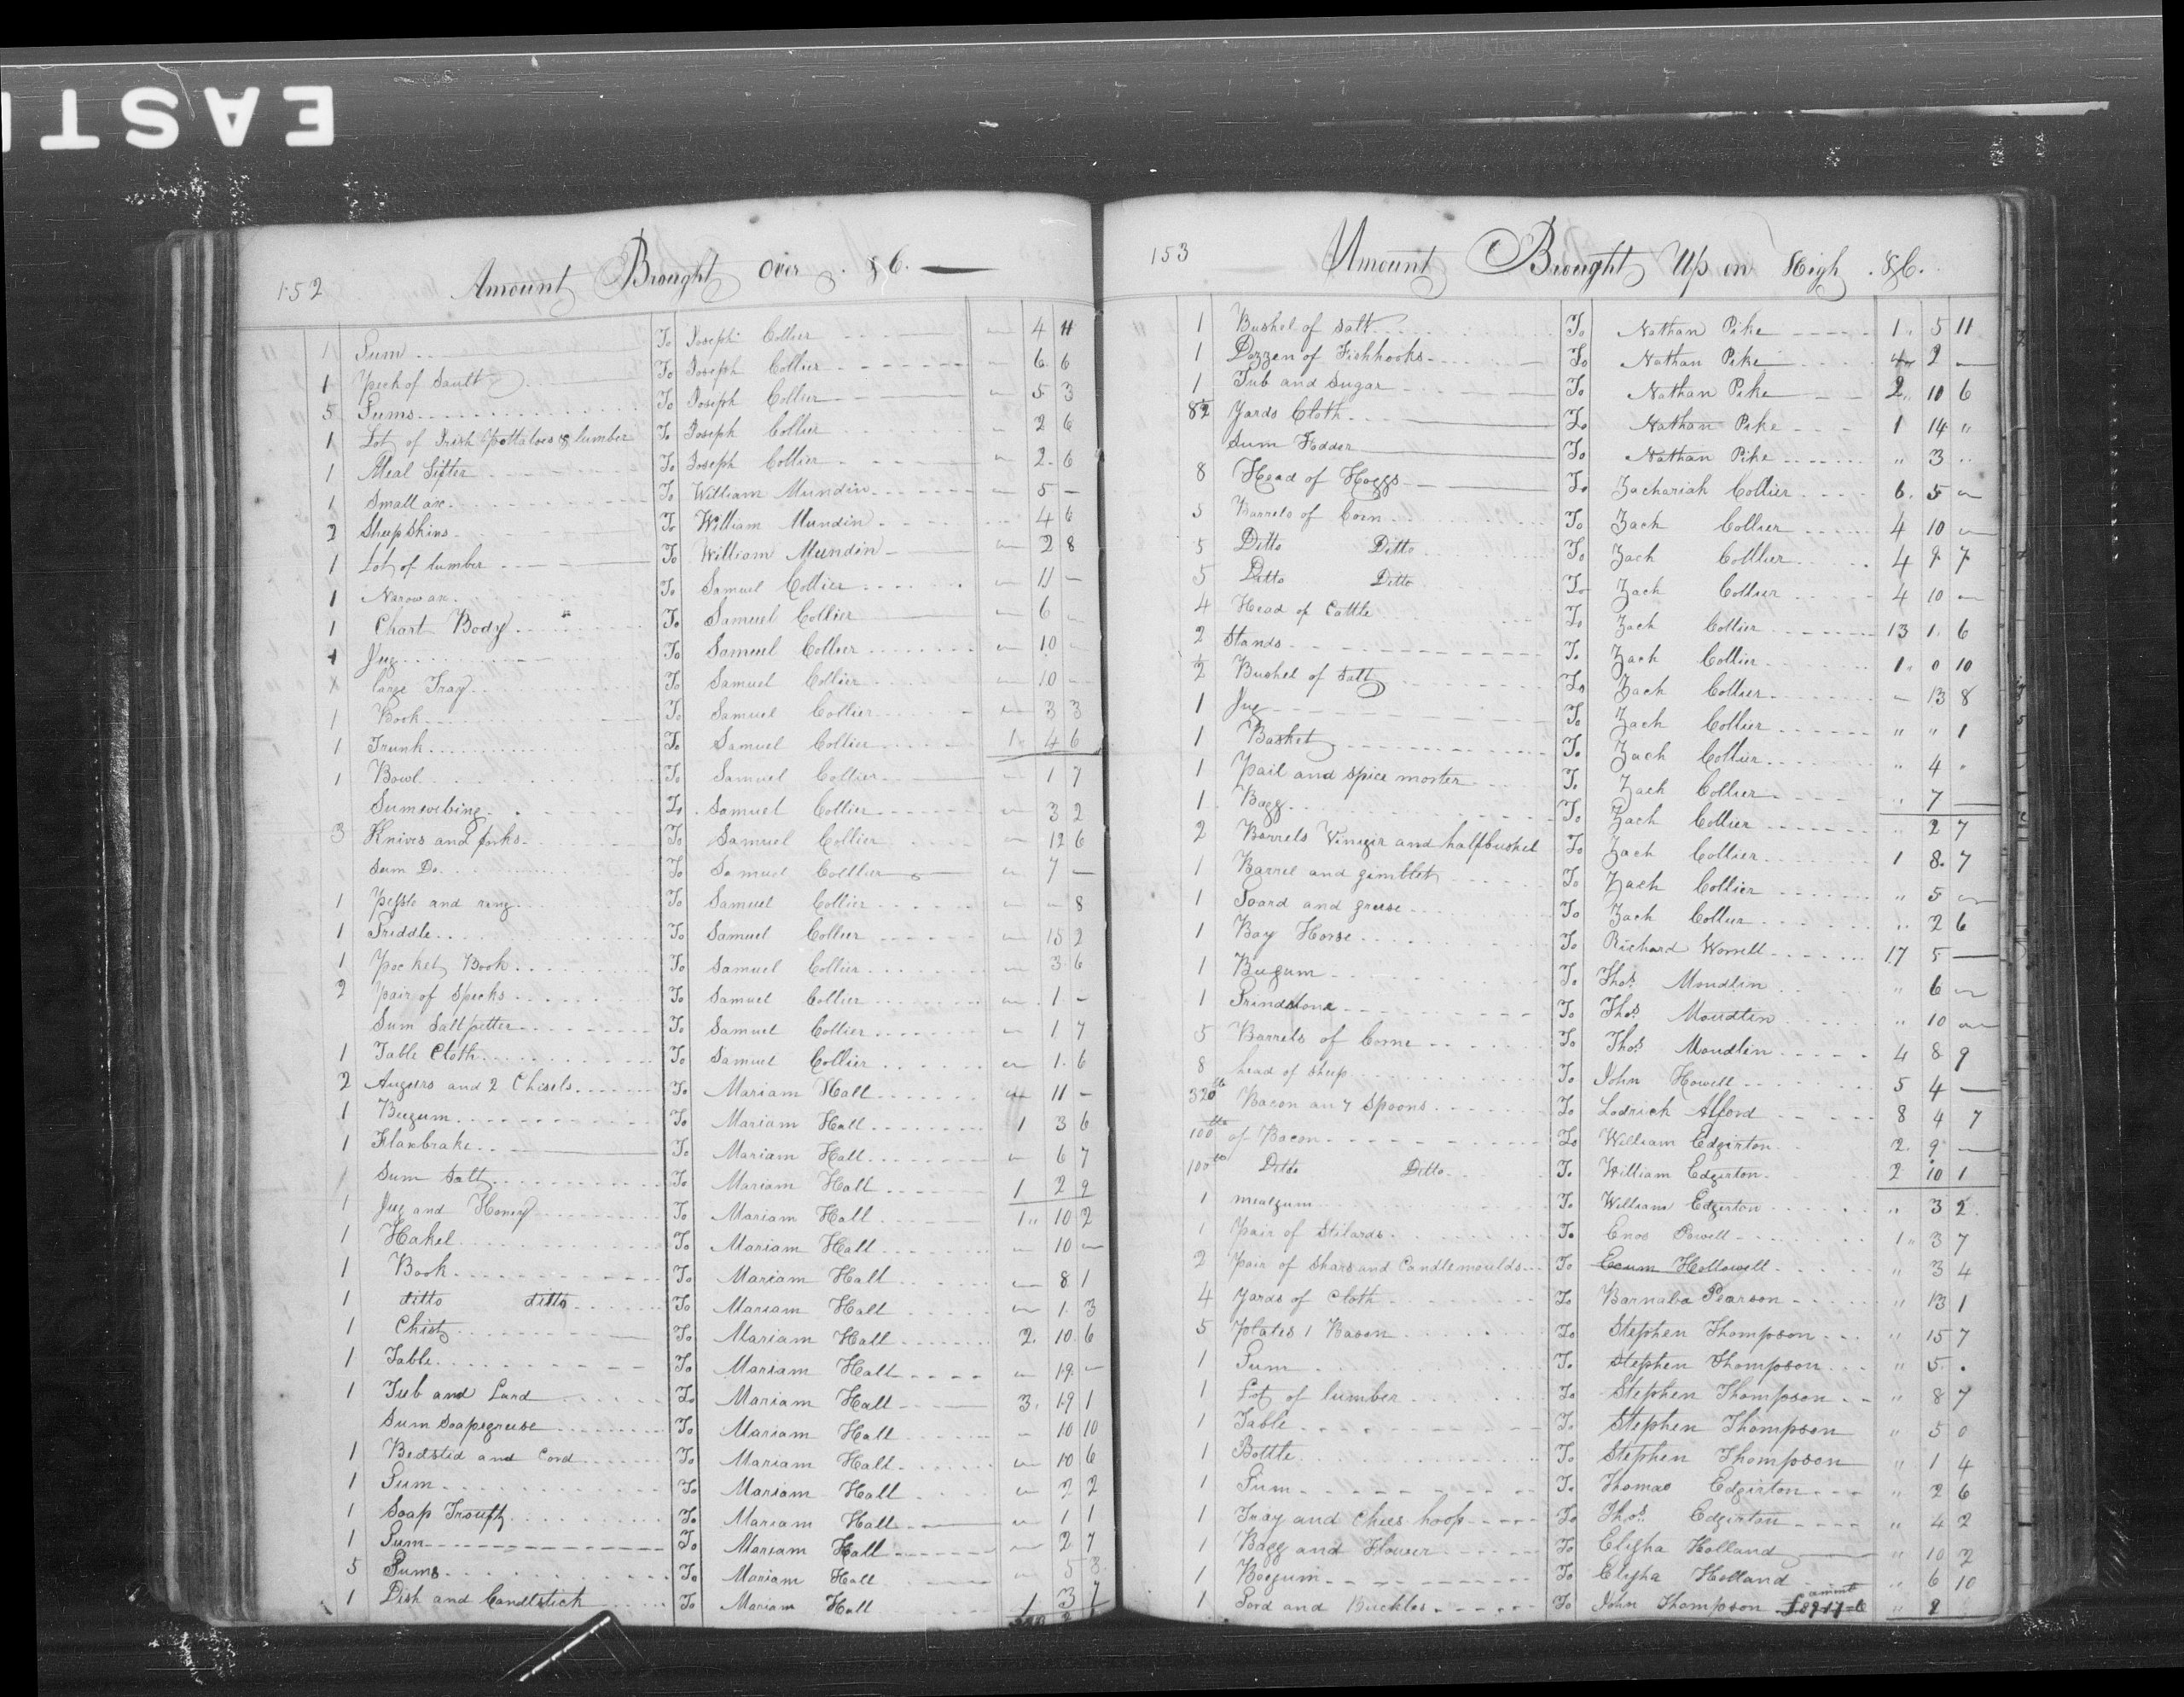 EAST
152
Amount Brought Over &C.
1 Gum To Joseph Collier 4 11
1 Peck of Sault To Joseph Collier 6 6
5 Gums To Joseph Collier 5 3
1 Lot of Irish Pottatoes & lumber To Joseph Collier 2 6
1 Meal Sifter To Joseph Collier 2 6
1 Small ax To William Mundin 5 –
2 Sheep Skins To William Mundin 4 6
1 Lot of lumber To William Mundin 2 8
1 Narow ax To Samuel Collier 11 –
1 Chart Body To Samuel Collier 6
1 Jug To Samuel Collier 10
1 large Tray To Samuel Collier 10
1 Book To Samuel Collier 3 3
1 Trunk To Samuel Collier 1 4 6
1 Bowl To Samuel Collier 1 7
Sumwebing To Samuel Collier 3 2
3 Knives and forks To Samuel Collier 12 6
Sum Do. To Samuel Colllier 7 –
1 Pessle and ring To Samuel Collier 8
1 Griddle To Samuel Collier 15 2
1 Pocket Book To Samuel Collier 3 6
2 pair of Specks To Samuel Collier 1 –
Sum Saltpetter To Samuel Collier 1 7
1 Table Cloth To Samuel Collier 1 6
2 Augurs and 2 Chisels To Mariam Hall 11 –
1 Beegum To Mariam Hall 1 3 6
1 Flaxbrake To Mariam Hall 6 7
Sum Salt To Mariam Hall 1 2 9
1 Jug and Honey To Mariam Hall 1 10 2
1 Hakel To Mariam Hall 10 –
1 Book To Mariam Hall 8 1
1 ditto ditto To Mariam Hall 1 3
1 Chist To Mariam Hall 2 10 6
1 Table To Mariam Hall 19 –
1 Tub and Lard To Mariam Hall 3 19 1
Sum Soapegreese To Mariam Hall 10 10
1 Bedstid and Cord To Mariam Hall 10 6
1 Gum To Mariam Hall 2 2
1 Soap Trouft To Mariam Hall 1 1
1 Gum To Mariam Hall 2 7
5 Gums To Mariam Hall 5 3
1 Dish and Candlstick To Mariam Hall 1 3 7
153
Amount Brought Up on High &C.
1 Bushel of Salt To Nathan Pike 1 5 11
1 Dozzen of Fishhooks To Nathan Pike 2 –
1 Tub and Sugar To Nathan Pike 2 10 6
8½ Yards Cloth To Nathan Pike 1 14 "
Sum Fodder To Nathan Pike " 3 "
8 Head of Hoggs To Zachariah Collier 6 5 –
5 Barrels of Corn To Zach Collier 4 10 –
5 Ditto Ditto To Zach Colllier 4 7 7
5 Ditto Ditto To Zach Collier 4 10 –
4 Head of Cattle To Zach Collier 13 1 6
2 Stands To Zach Collier 1 0 10
2 Bushel of Salt To Zach Collier – 13 8
1 Jug To Zach Collier " " 1
1 Basket To Zach Collier " 4 "
1 Pail and Spice morter To Zach Collier " 7 –
1 Bagg To Zach Collier " 2 7
2 Barrels Vinigir and halfbushel To Zach Collier 1 8 7
1 Barrel and gimblet To Zach Collier " 5 –
1 Goard and greese To Zach Collier " 2 6
1 Bay Horse To Richard Worrell 17 5 –
1 Beegum To Thos. Moudlin " 6 –
1 Grindstone To Thos. Moudlin " 10 –
5 Barrels of Corne To Thos. Moudlin 4 8 9
8 head of Sheep To John Howell 5 4 –
320 lb Bacon an 7 Spoons To Lodrick Alford 8 4 7
100 lbs of Bacon To William Edgirton 2 9 –
100 lb Ditto Ditto To William Edgirton 2 10 1
1 mealgum To William Edgirton " 3 2
1 Pair of Stilards To Enos Powell 1 3 7
2 Pair of Shars and Candlemoulds To Hollowell " 3 4
4 Yards of Cloth To Barnaba Pearson " 13 1
5 Plates 1 Bason To Stephen Thompson " 15 7
1 Gum To Stephen Thompson " 5 .
1 Lot of lumber To Stephen Thompson " 8 7
1 Table To Stephen Thompson " 5 0
1 Bottle To Stephen Thompson " 1 4
1 Gum To Thomas Edgirton " 2 6
1 Tray and Chees hoop To Thos. Edgirton " 4 2
1 Bagg and Flower To Eligha Holland " 10 2
1 Beegum To Eligha Holland " 6 10
1 Gord and Buckles To John Thompson " 2